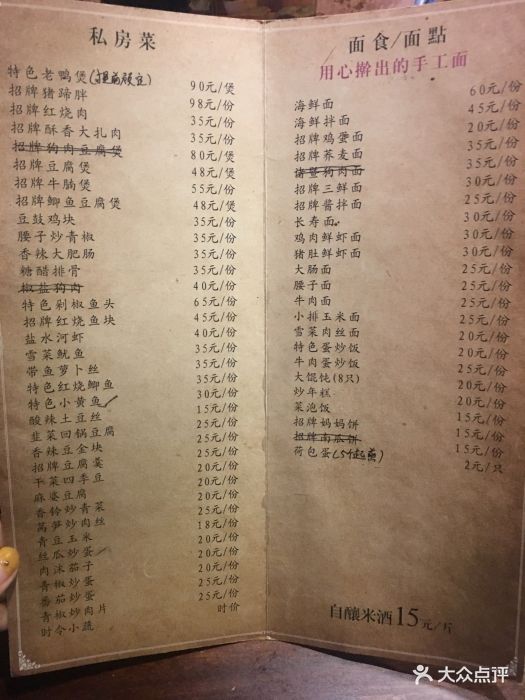 私房菜
特色老鸭煲(提前预定)
90元/煲
招牌猪蹄胖
98元/份
招牌红烧肉
35元/份
招牌酥香大扎肉
35元/份
招牌狗肉豆腐煲
80元/煲
招牌豆腐煲
48元/煲
招牌牛腩煲
55元/份
招牌鲫鱼豆腐煲
48元/煲
豆豉鸡块
35元/份
腰子炒青椒
35元/份
香辣大肥肠
35元/份
糖醋排骨
35元/份
椒盐狗肉
40元/份
特色剁椒鱼头
65元/份
招牌红烧鱼块
45元/份
盐水河虾
40元/份
雪菜鱿鱼
35元/份
带鱼萝卜丝
35元/份
特色红烧鲫鱼
30元/份
特色小黄鱼
35元/份
酸辣土豆丝
15元/份
韭菜回锅豆腐
25元/份
香辣豆金块
25元/份
招牌豆腐羹
20元/份
干菜四季豆
20元/份
麻婆豆腐
20元/份
香铃炒青菜
25元/份
莴笋炒肉丝
25元/份
青豆玉米
18元/份
丝瓜炒蛋
20元/份
肉沫茄子
20元/份
青椒炒蛋
20元/份
番茄炒蛋
20元/份
青椒炒肉片
25元/份
时令小蔬
时价
面食/面點
用心擀出的手工面
海鲜面
60元/份
海鲜拌面
45元/份
招牌鸡蛋面
20元/份
招牌荞麦面
35元/份
狗肉面
35元/份
招牌三鲜面
30元/份
招牌酱拌面
25元/份
长寿面
30元/份
鸡肉鲜虾面
30元/份
猪肚鲜虾面
30元/份
大肠面
25元/份
腰子面
25元/份
牛肉面
25元/份
小排玉米面
25元/份
雪菜肉丝面
20元/份
特色蛋炒饭
20元/份
牛肉蛋炒饭
25元/份
大馄饨(8只)
20元/份
炒年糕
20元/份
菜泡饭
15元/份
招牌妈妈饼
15元/份
招牌南瓜饼
15元/份
荷包蛋(5个起煎)
2元/只
自酿米酒15元/斤
大众点评